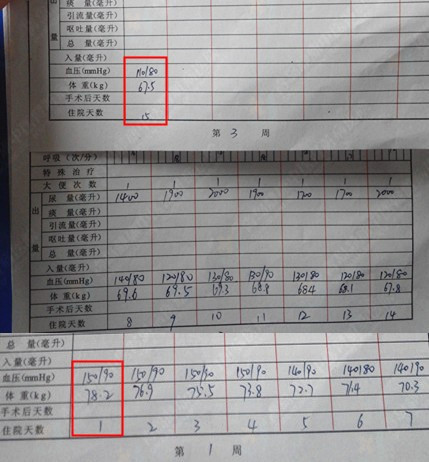 出
量
痰 量(毫升)
引流量(毫升)
呕吐量(毫升)
总 量(毫升)
入量(毫升)
血压(mmHg) 140/80
体 重(kg) 67.5
手术后天数
住院天数 15
第 3 周
呼吸(次/分)
特殊治疗
大便次数 1 1 1 1 1 1 1
出
量
尿 量(毫升) 1400 1900 2000 1900 1700 2000
痰 量(毫升)
引流量(毫升)
呕吐量(毫升)
总 量(毫升)
入量(毫升)
血压(mmHg) 140/80 120/80 130/80 130/90 130/80 120/80 120/80
体 重(kg) 69.6 69.5 69.3 68.8 68.4 68.1 67.8
手术后天数
住院天数 8 9 10 11 12 13 14
总 量(毫升)
入量(毫升)
血压(mmHg) 150/90 150/90 150/90 150/90 140/90 140/80 140/90
体 重(kg) 78.2 76.9 75.5 73.8 72.7 71.4 70.3
手术后天数
住院天数 1 2 3 4 5 6 7
第 1 周